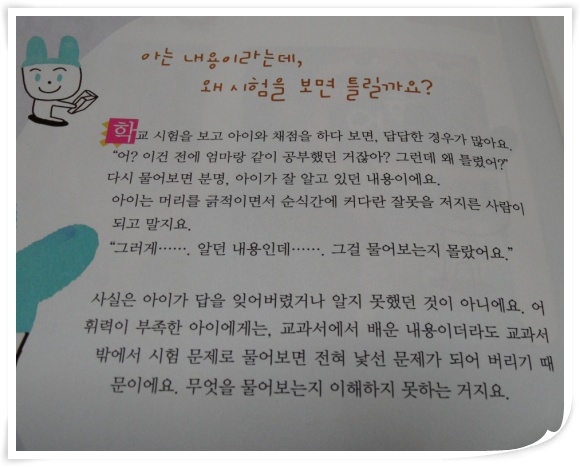 아는 내용이라는데,
왜 시험을 보면 틀릴까요?
학교 시험을 보고 아이와 채점을 하다 보면, 답답한 경우가 많아요.
“어? 이건 전에 엄마랑 같이 공부했던 거잖아? 그런데 왜 틀렸어?”
다시 물어보면 분명, 아이가 잘 알고 있던 내용이에요.
아이는 머리를 긁적이면서 순식간에 커다란 잘못을 저지른 사람이
되고 말지요.
“그러게……. 알던 내용인데……. 그걸 물어보는지 몰랐어요.”
사실은 아이가 답을 잊어버렸거나 알지 못했던 것이 아니에요. 어
휘력이 부족한 아이에게는, 교과서에서 배운 내용이더라도 교과서
밖에서 시험 문제로 물어보면 전혀 낯선 문제가 되어 버리기 때
문이에요. 무엇을 물어보는지 이해하지 못하는 거지요.